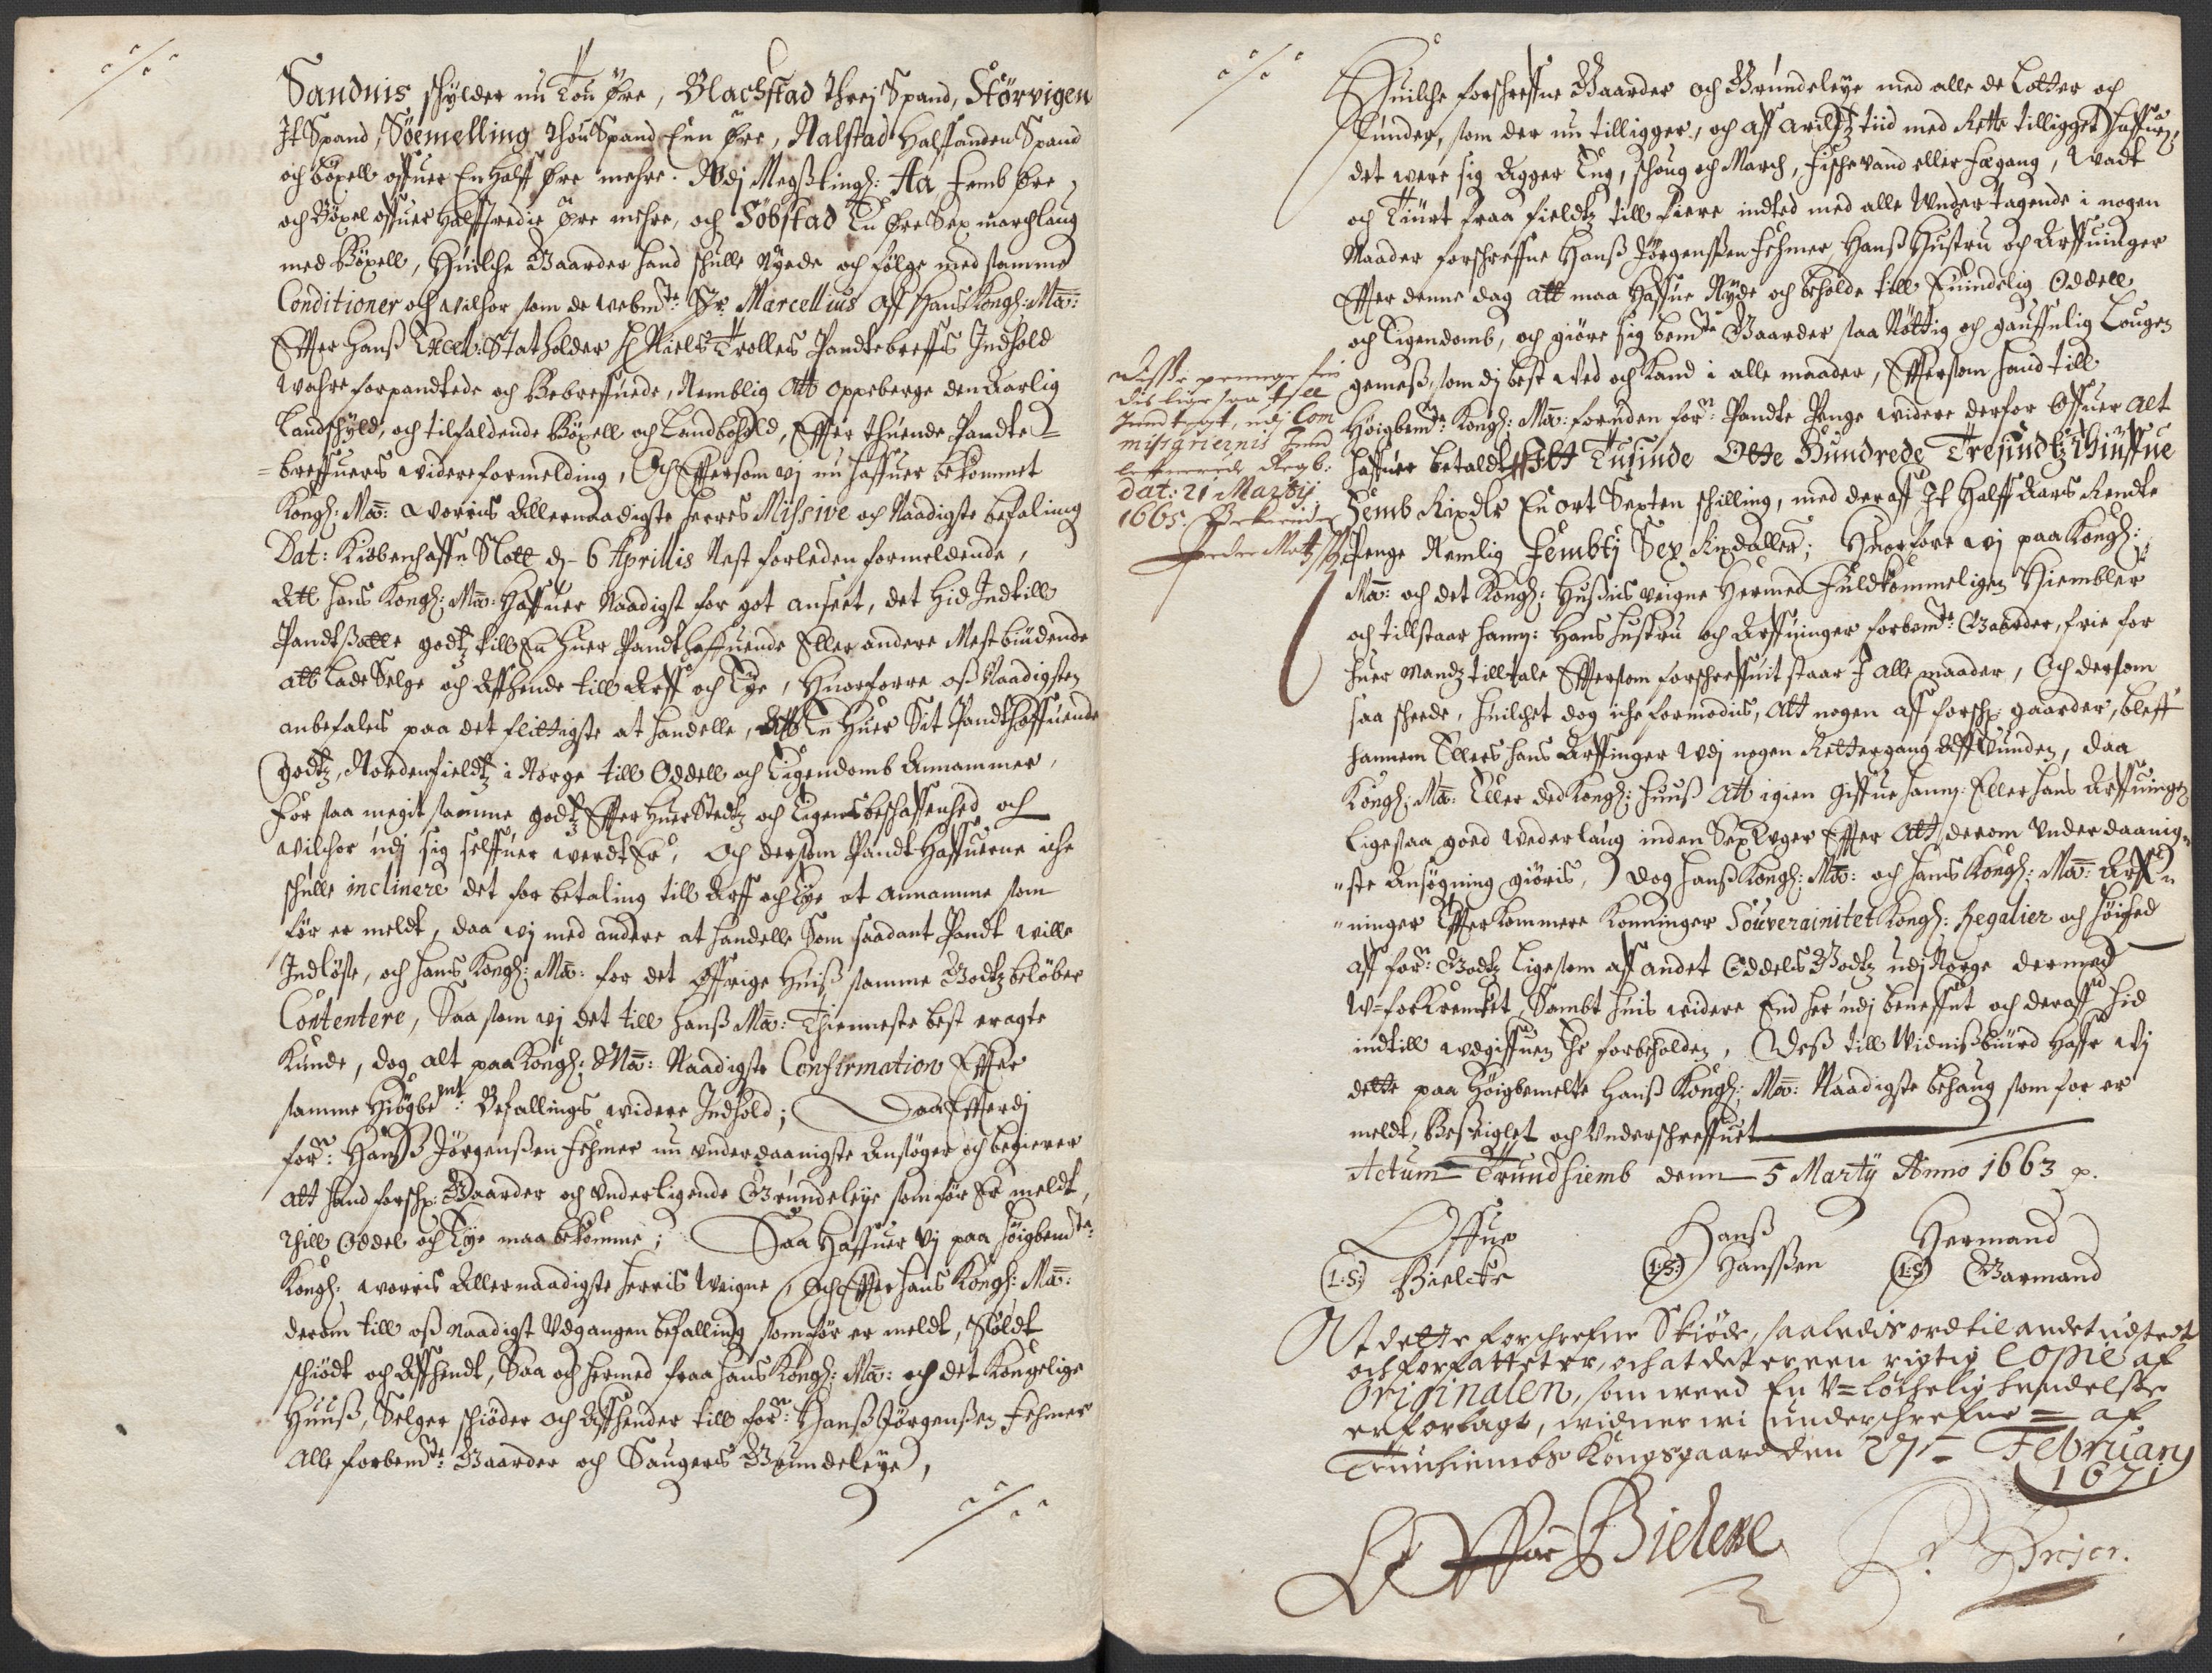 Sandnis skylder nu Tou Øre, Blachstad threj Spand, Størvigen
It Spand, Søemelling thou Spand Enn Øre, Nalstad Halfanden Spand
och böxell offuer En halff Øre mehre. Udj Megstingh: Aa femb Øre,
och Böxel offuer halfftredie Øre mehre, och Söbstad En Øre Sex marchlaug
med Böxell, Huilche Gaarder hand schulle Nyde och følge med samme
Conditioner och vilchor som de welbmte Sr. Marcellius aff Hans Kongh: Ma:
Effter Hanß Excel: Statholder H Niels Trolles Pandtebreffs Indhold
wahre forpandtede och Bebreffuede, Nemblig Att oppeberge den Aarlig
Landschyld, och tilfaldende Böxell och Landbohold, Effter thuende Pandte=
=breffuers widere formelding, Och Effersom vj nu haffuer bekommet
Kongh: Ma: worris Allernaadigste herres Missive och Naadigste befaling
Dat: Kiøbenhaffn Slott d. 6 Aprillis Nest forleden formeldende,
Att Hans Kongh: Ma: Haffuer Naadigst for got anseet, det hid Indtill
Pandtsatte godtz till En huer Pandthaffuende Eller andere Mestbiudende
att lade Selge och Affhende till Arff och Eye, Huorforre oß Naadigsten
anbefales paa det flittigste at handelle, Att En huer Sit Pandthaffuende
godtz, Nordenfieldtz i Norge till Oddell och Eigendomb Annammer,
for saa megit samme godtz Effter huer Stedtz och Eigens beschaffenhed och
wilchor udj sig selffuer werdt Er, Och dersom Pandthaffuerne iche
schulle inclinere det for betaling till Arff och Eye at annamme som
før er meldt, daa vj med andere at handelle Som saadant Pandt wille
Indløse, och hans Kongh: Ma: for det øffrige huiß samme Godtz beløber
Contentere, Saa som vj det till hanß Ma: Thienneste best eragte
Kunde, dog alt paa Kongh: Ma: Naadigste Confirmation Effter
samme Høigbemt: Befallings widere Indhold; Daa Effterdj
forn: Hanß Jörgenßen Fehmer nu underdaanigste Ansøger och begierer
att hand forschr: Gaarder och underligende Grundeleye som før Er meldt,
thill Oddel och Eye maa bekomme; Saa Haffuer Vj paa Høigbemte:
Kongh: worris Allernaadigste herris Weigne, Och Effter hans Kongh: Ma:
derom till oß naadigst Udgangen befalling som før er meldt, Soldt
schiødt och Affhendt, Saa och hermed fraa hans Kongh: Ma: och det Kongelige
Huuß, Selger schiøder och Affhender till forn: Hanß Jörgenßen Fehmer
Alle forbemte: Gaarder och Saugers Grundeleye,
Huilche forschreffne Gaarder och Grundeleye med alle de Lotter och
Lunder, som der nu tilligger, och aff arildtz tiid med Rette tilligget haffuer,
det were sig Agger Eng, schoug och March, fischevand eller fægang, Vadt
och Tiurt fraa fieldtz till fiere indted med alle Undertagende i nogen
Maader forschreffne Hanß Jörgenßen Fehmer, Hanß Hustru och Arffuinger
Effter denne dag att maa haffue Nyde och beholde till Euindelig Oddell
och Eigendomb, och giöre sig bemte Gaarder saa Nöttig och gauffnlig Lougen
gemeß, som dj best wed och Kand i alle maader, Effersom hand till
Høigbemte: Kongh: Ma: foruden forn: Pandte Penge widere derfor offuer alt
haffuer betaldt Ett Tusinde Otte Hundrede Tresindtz Thiuffue
Femb Rixdlr En ort Sexten schilling, med der aff It halff Aars Rendte
Penge Nemlig Fembtj Sex Rixdaller; Huorfore vj paa Kongh:
Ma: och det Kongh: Hußis weigne Hermed Fuldkommeligen Hiembler
och tillstaar hannem: Hans hustru och Arffuinger forbemte: Gaarder, frie for
huer Mandz tilltale Effersom forschreffuit staar I alle maader, Och dersom
saa scheede, huilchet dog iche formodis, Att nogen aff forschr: gaarder, bleff
hannem Ellers hans Arffinger Udj nogen Rettergang Affvunden, daa
Kongh: Ma: Eller ded Kongh: Huuß Att igien giffue hannem: Eller hans Arffuinger
ligesaa goed wederlaug inden Sex uger Effter Att derom underdaanig=
"ste Ansøgning giöris, Dog hanß Kongh: Ma: och hans Kongh: Ma: Arff=
"uinger Effterkommere Konninger Souverainitet Kongh: Regalier och høihed
aff forn: Godtz ligesom aff andet Oddels Godtz udj Norge dermed
U=forkrencket, Sambt huis widere End her udj beneffnt och der aff hid
indtill udgiffuen Er forbeholden, Deß till Widnißbiurd Haffr vj
dette paa Høigbemelte Hanß Kongh: Ma: Naadigste behaug som før er
meldt, Beseiglet och Underschreffuet
Actum Trundhiemb denn 5 Martij Anno 1663 p.
Offue Hanß Hermand
(L:S:) Bielcke (L:S:) Hanßen (L:S:) Garmand
At dette forschrefne Skiøde, saaledis ord til andet udstedt
och forfattet er, och at det er een rigtig Copie af
Originalen, som wed En U=lychelig hendelse
er forlagt, widner wi underschrefne = af
Trunhiembs Kongsgaard den 27 Februarij
1671
Offue Bielcke
Disse penninge
dis ligesaa till
Indtegt, udj Com
missariernis
dat: 21 Martij
1665.